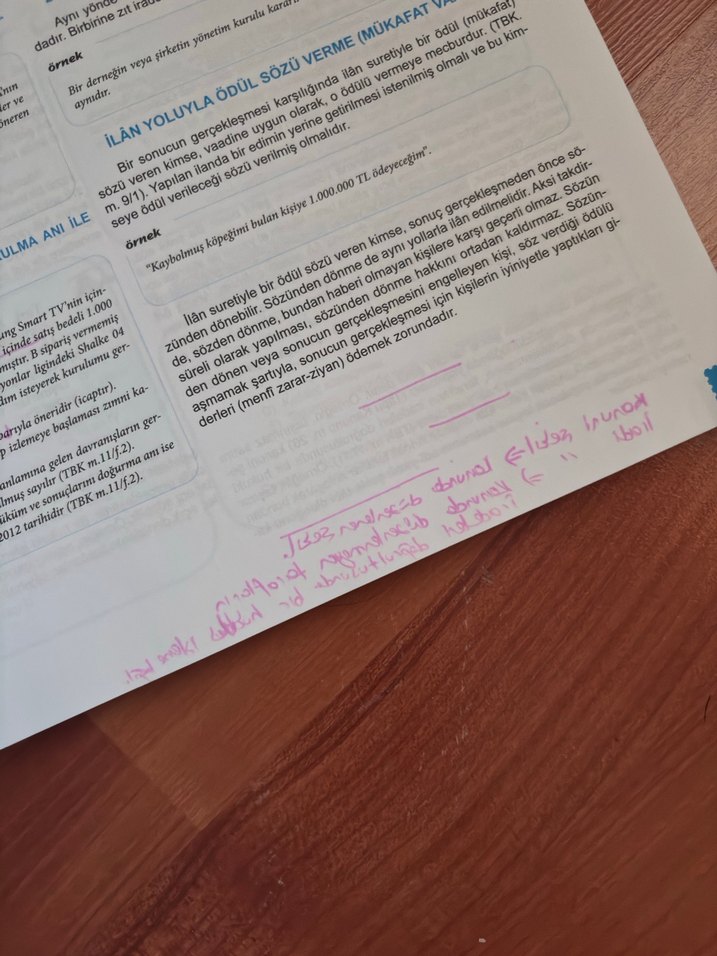 Aynı yönde
dadır. Birbirine zıt irade
örnek
Bir derneğin veya şirketin yönetim kurulu kararı
aynıdır.
İLÂN YOLUYLA ÖDÜL SÖZÜ VERME (MÜKAFAT VA
Bir sonucun gerçekleşmesi karşılığında ilân suretiyle bir ödül (mükafat)
sözü veren kimse, vaadine uygun olarak, o ödülü vermeye mecburdur. (TBK.
m. 9/1). Yapılan ilanda bir edimin yerine getirilmesi istenilmiş olmalı ve bu kim-
seye ödül verileceği sözü verilmiş olmalıdır.
örnek
"Kaybolmuş köpeğimi bulan kişiye 1.000.000 TL ödeyeceğim".
İlân suretiyle bir ödül sözü veren kimse, sonuç gerçekleşmeden önce sö-
zünden dönebilir. Sözünden dönme de aynı yollarla ilân edilmelidir. Aksi takdir-
de, sözden dönme, bundan haberi olmayan kişilere karşı geçerli olmaz. Sözün
süreli olarak yapılması, sözünden dönme hakkını ortadan kaldırmaz. Sözün-
den dönen veya sonucun gerçekleşmesini engelleyen kişi, söz verdiği ödülü
aşmamak şartıyla, sonucun gerçekleşmesi için kişilerin iyiniyetle yaptıkları gi-
derleri (menfi zarar-ziyan) ödemek zorundadır.
nın
ler ve
öneren
RULMA ANI İLE
ung Smart TV'nin için-
içinde satış bedeli 1.000
mıştır. B sipariş vermemiş
yonlar ligindeki Shalke 04
dım isteyerek kurulumu ger-
barıyla öneridir (icaptır).
p izlemeye başlaması zımni ka-
anlamına gelen davranışların ger-
lmuş sayılır (TBK m.11/f.2).
üküm ve sonuçlarını doğurma anı ise
2012 tarihidir (TBK m.11/f.2).
Kanuni şekil → kanunda düzenlenen şekil.
İradi " → kanunda düzenlenmeyen tarafların
doğrultusunda bir